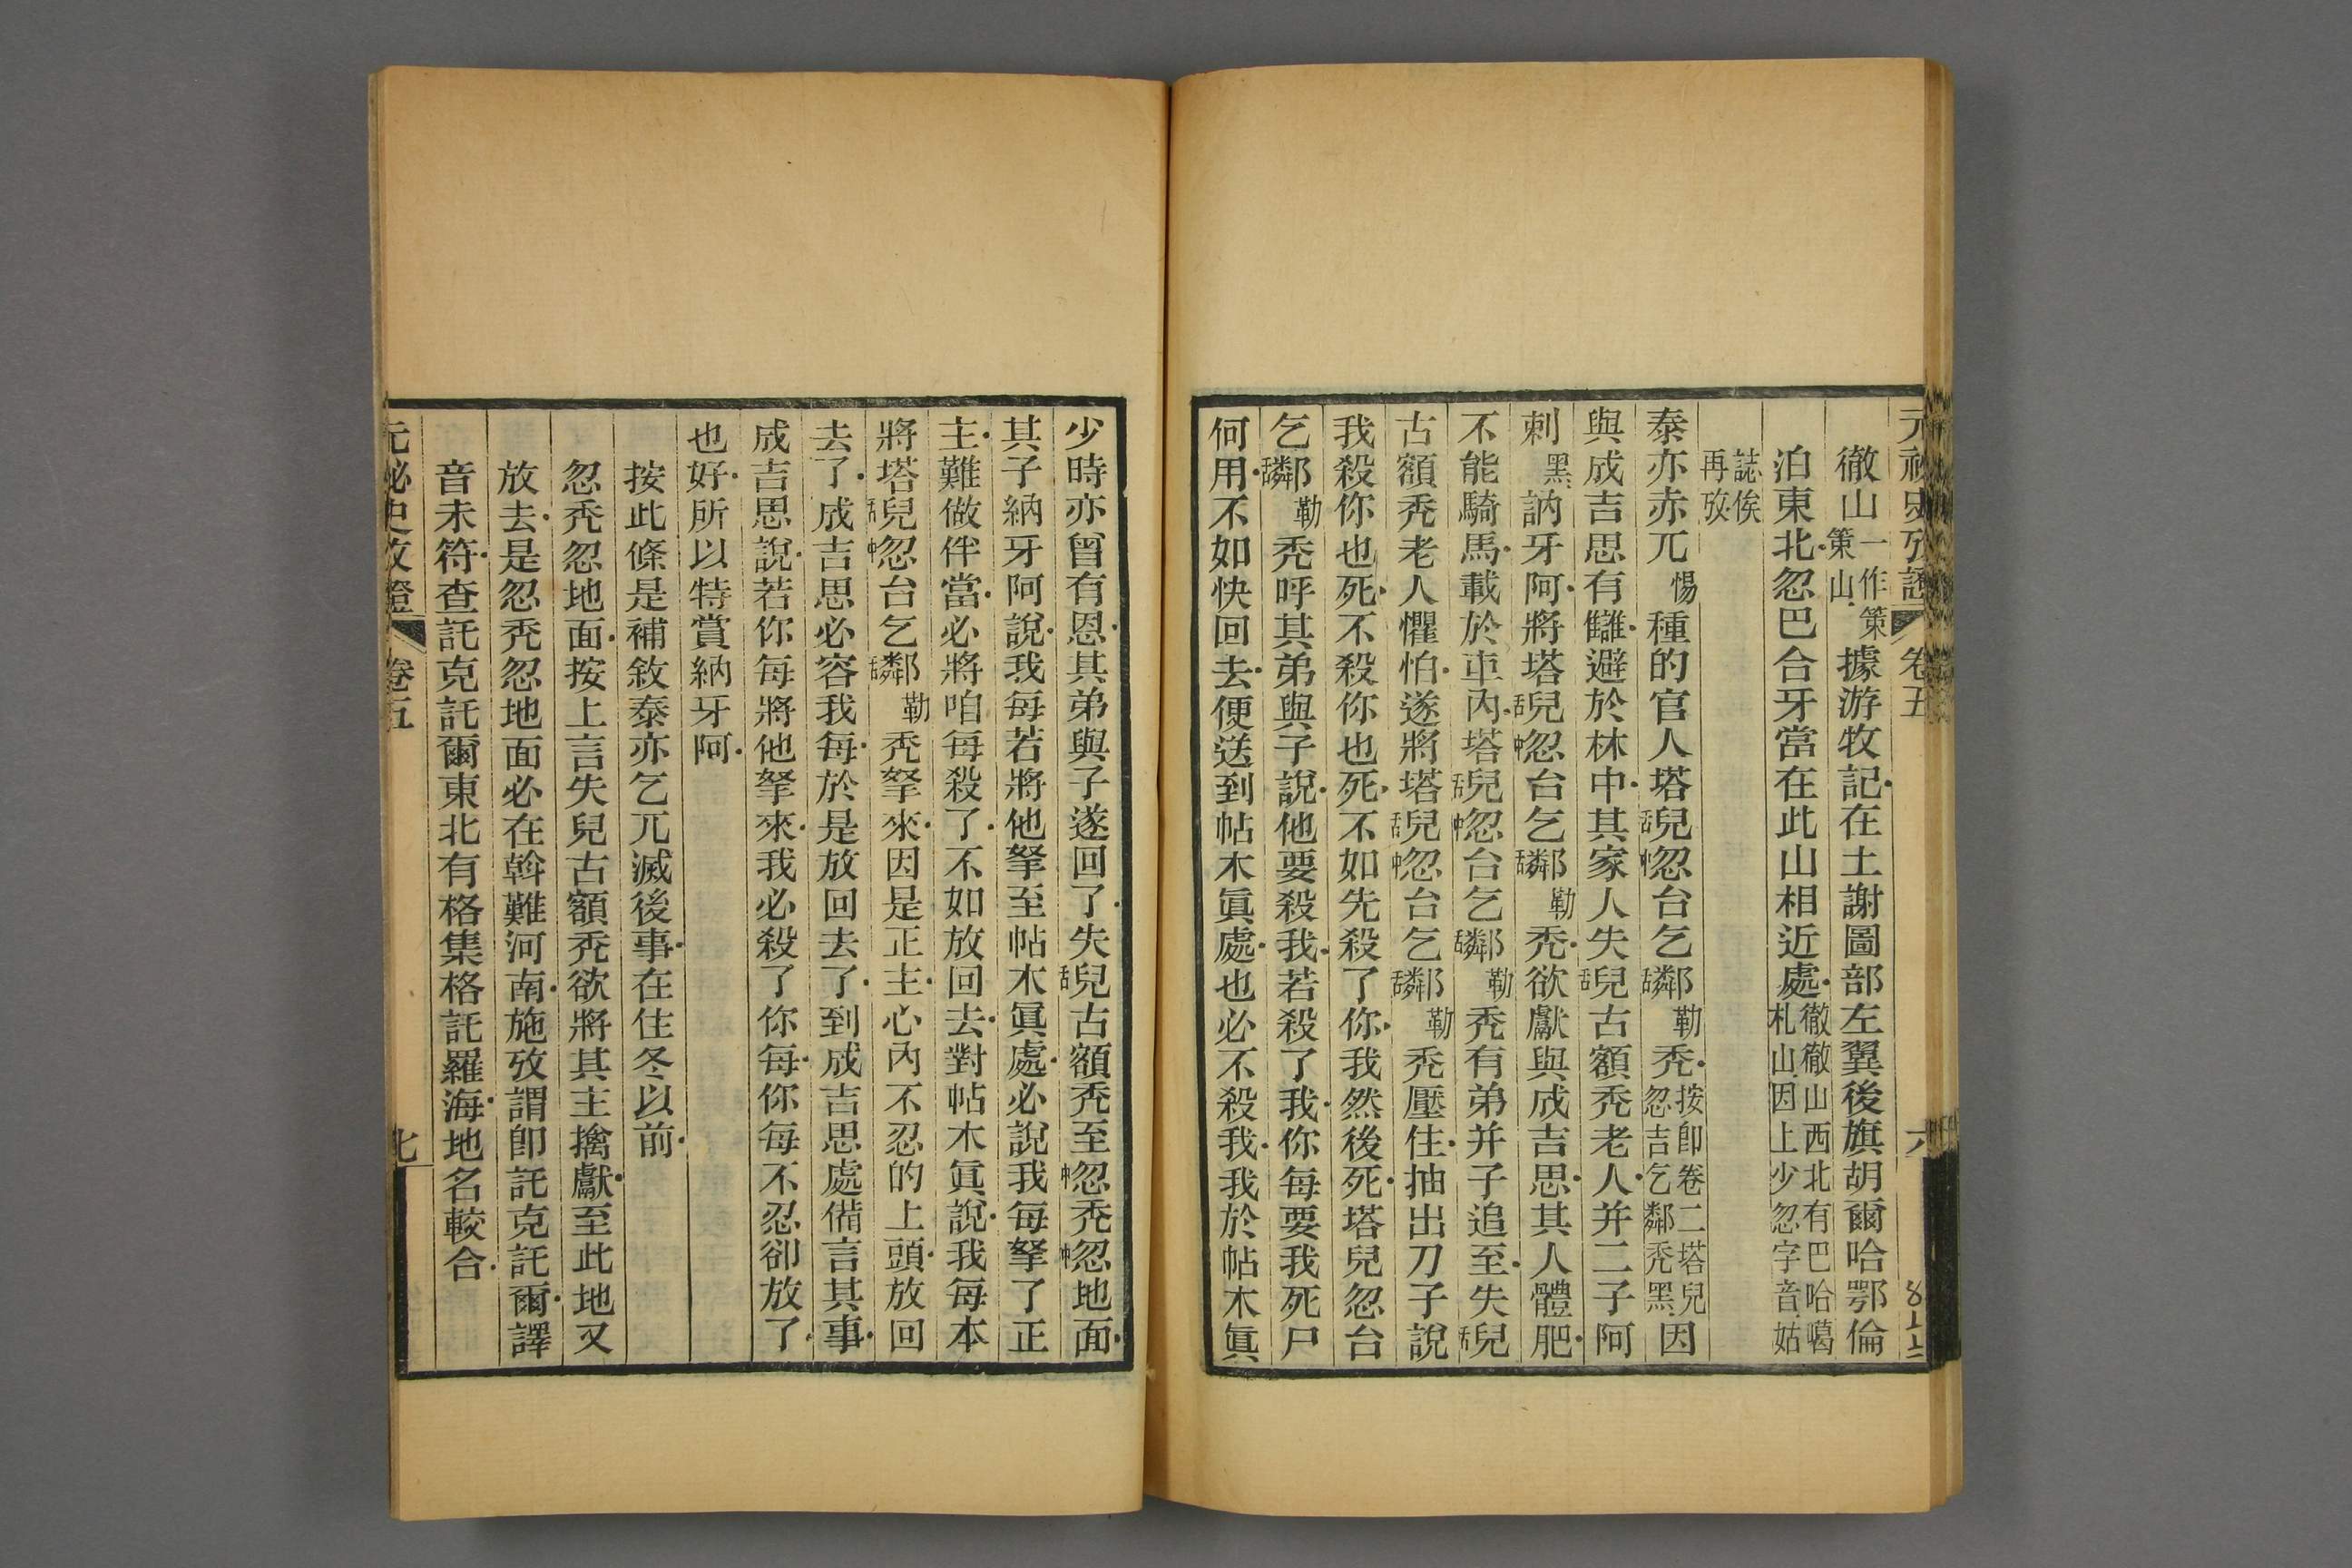 元祕史攷證 卷五 六
徹山一作策策山據游牧記在土謝圖部左翼後旗胡爾哈鄂倫
泊東北忽巴合牙當在此山相近處徹徹山西北有巴哈噶札山因上少忽字音姑
誌俟再攷
泰亦赤兀惕種的官人塔兒忽台乞鄰勒禿按卽卷二塔兒忽吉乞鄰禿黑因
與成吉思有讎避於林中其家人失兒古額禿老人并二子阿
剌黑訥牙阿將塔兒忽台乞鄰勒禿欲獻與成吉思其人體肥
不能騎馬載於車內塔兒忽台乞鄰勒禿有弟并子追至失兒
古額禿老人懼怕遂將塔兒忽台乞鄰勒禿壓住抽出刀子說
我殺你也死不殺你也死不如先殺了你我然後死塔兒忽台
乞鄰勒禿呼其弟與子說他要殺我若殺了我你每要我死尸
何用不如快回去便送到帖木眞處也必不殺我我於帖木眞
少時亦曾有恩其弟與子遂回了失兒古額禿至忽禿忽地面
其子納牙阿說我每若將他拏至帖木眞處必說我每拏了正
主難做伴當必將咱每殺了不如放回去對帖木眞說我每本
將塔兒忽台乞鄰勒禿拏來因是正主心內不忍的上頭放回
去了成吉思必容我每於是放回去了到成吉思處備言其事
成吉思說若你每將他拏來我必殺了你每你每不忍卻放了
也好所以特賞納牙阿
按此條是補敘泰亦乞兀滅後事在住冬以前
忽禿忽地面按上言失兒古額禿欲將其主擒獻至此地又
放去是忽禿忽地面必在斡難河南施攷謂卽託克託爾譯
音未符查託克託爾東北有格集格託羅海地名較合
元祕史攷證 卷五 七